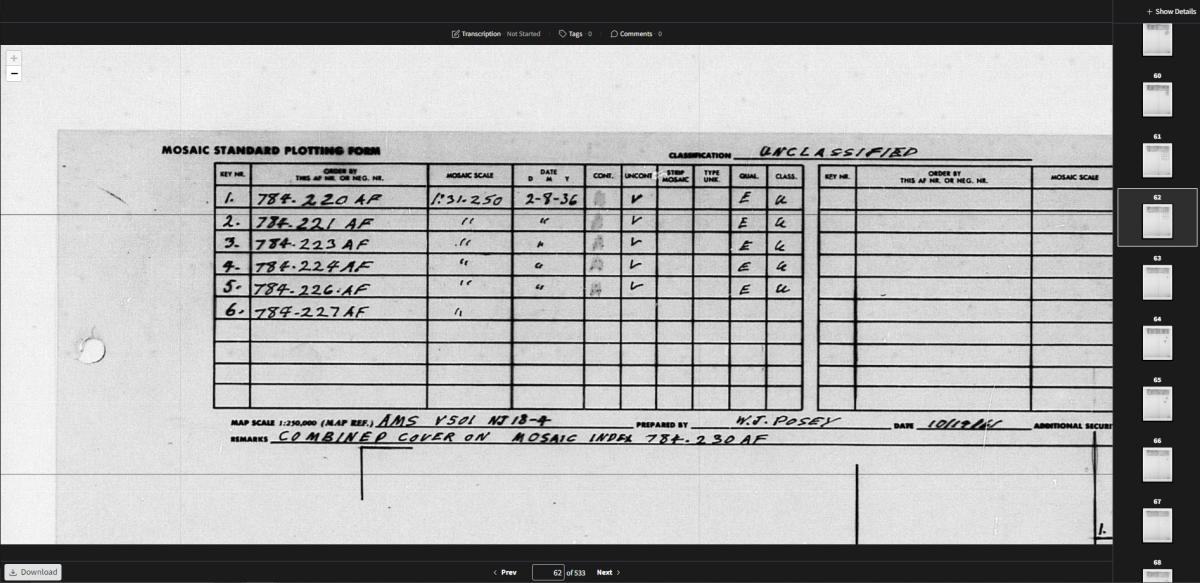 + Show Details
Transcription Not Started Tags · 0 Comments · 0
MOSAIC STANDARD PLOTTING FORM
CLASSIFICATION UNCLASSIFIED
KEY NR. ORDER BY THIS AF NR. OR NEG. NR. MOSAIC SCALE DATE D M Y CONT. UNCONT STRIP MOSAIC TYPE UNK. QUAL. CLASS. KEY NR. ORDER BY THIS AF NR. OR NEG. NR. MOSAIC SCALE
1. 784-220 AF 1:31-250 2-8-36 ✓ E U
2. 784-221 AF " " ✓ E U
3. 784-223 AF " " ✓ E U
4. 784-224 AF " " ✓ E U
5. 784-226-AF " " ✓ E U
6. 784-227 AF "
MAP SCALE 1:250,000 (MAP REF.) AMS V501 NJ 18-4 PREPARED BY W.J. POSEY DATE ADDITIONAL SECURI
REMARKS COMBINED COVER ON MOSAIC INDEX 784-230 AF
1.
60
61
62
63
64
65
66
67
68
Download
Prev 62 of 533 Next